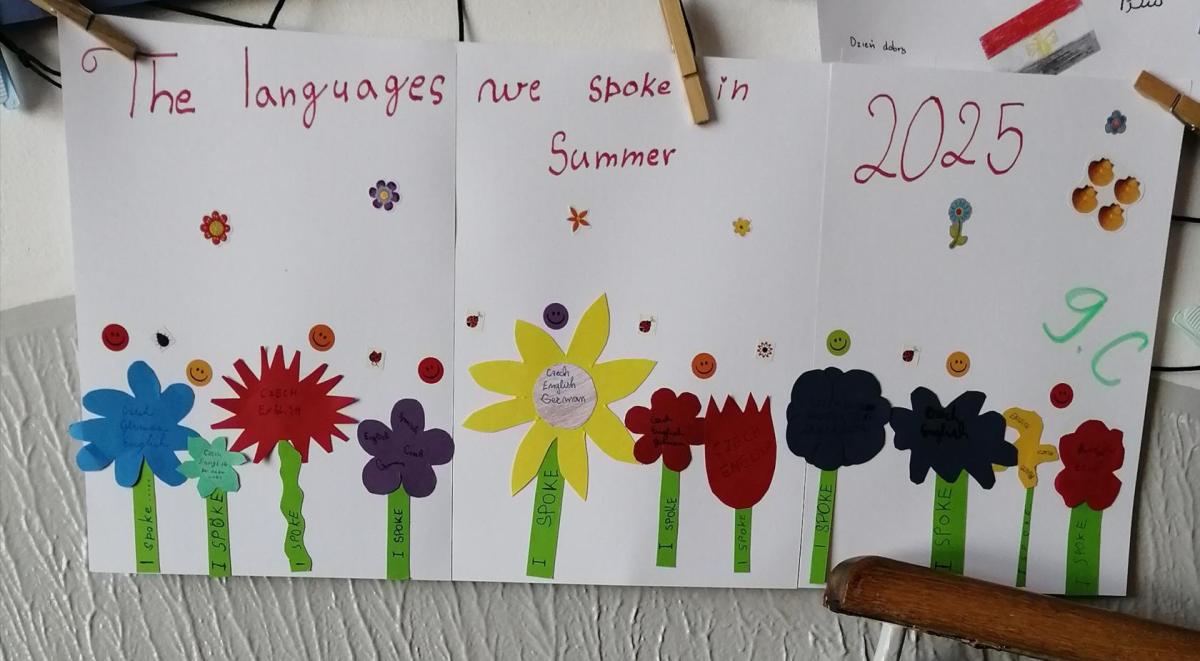 Dzień dobry
The languages we spoke in
Summer
2025
9.C
Czech
German
English
I spoke....
Czech
English
I SPOKE
CZECH
English
I SPOKE
English
Czech
German
I SPOKE
Czech
English
German
I SPOKE
Czech
English
German
I SPOKE
CZECH
ENGLISH
I SPOKE
I SPOKE
Czech
English
I SPOKE
I SPOKE
I SPOKE